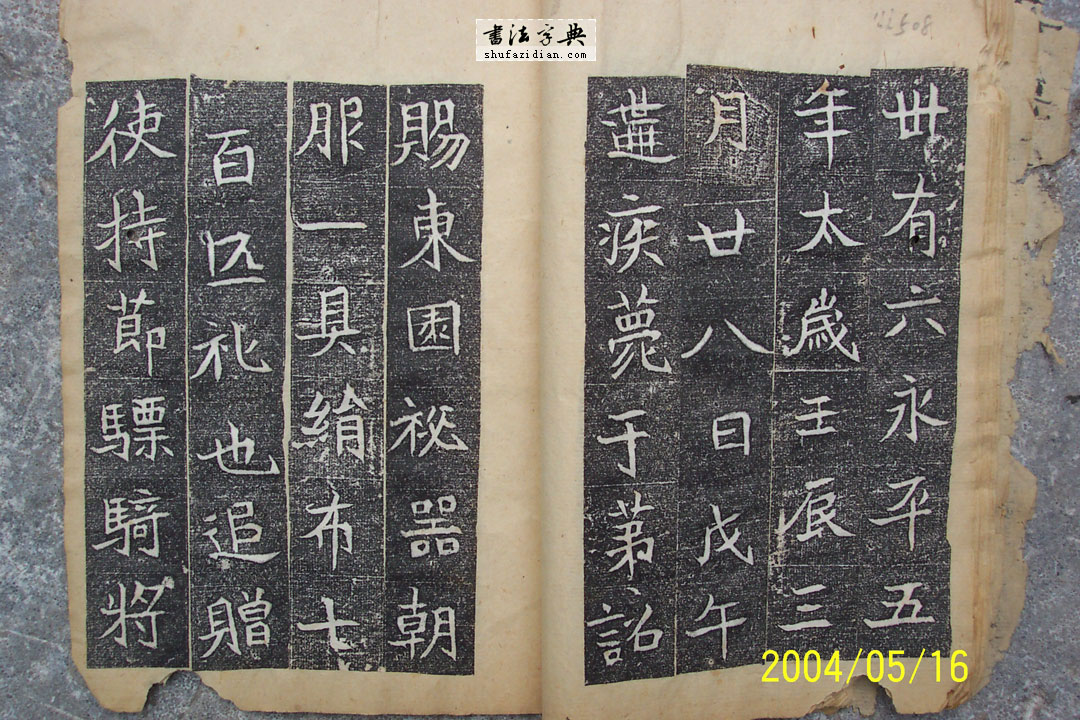 書法字典
shufazidian.com
22508
卌有六永平五
年太歲壬辰三
月廿八日戊午
遘疾薨于苐詔
賜東園祕器朝
服一具絹布七
百匹礼也追贈
使持節驃騎將
2004/05/16